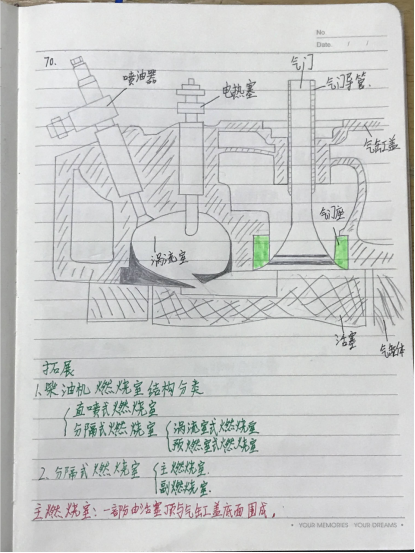 No
Date / /
70.
喷油器
电热塞
气门
气门导管
气缸盖
气门座
涡流室
活塞
气缸体
拓展
1.柴油机燃烧室结构分类
直喷式燃烧室
分隔式燃烧室
涡流室式燃烧室
预燃室式燃烧室
2.分隔式燃烧室
主燃烧室.
副燃烧室.
主燃烧室:一部分由活塞顶与气缸盖底面围成,
• YOUR MEMORIES YOUR DREAMS •